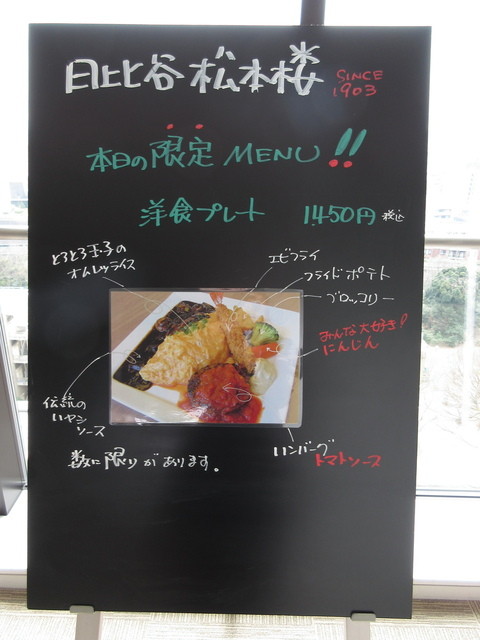 日比谷 松本楼 SINCE 1903
本日の限定 MENU !!
洋食プレート 1,450円 税込
とろとろ玉子の
オムレツライス
エビフライ
フライドポテト
ブロッコリー
みんな大好き!
にんじん
伝統の
ハヤシ
ソース
ハンバーグ
トマトソース
数に限りがあります。